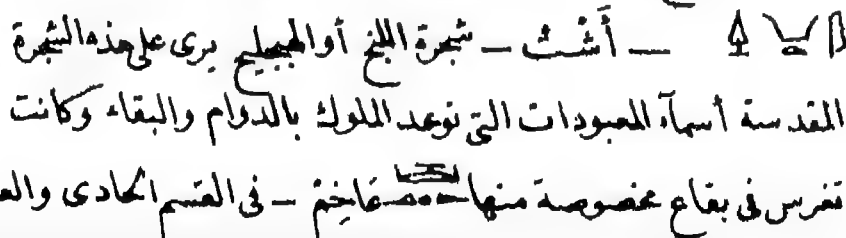 — أَشْتْ — شجرة اللبخ أو الهجليج يرى على هذه الشجرة
المقدسة أسمآء المعبودات التى توعد الملوك بالدوام والبقاء وكانت
تغرس فى بقاع مخصوصة منها عَاخِمْ — فى القسم الحادى والع